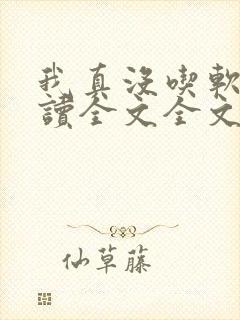 我真沒喫軟
讀全文全文
仙草藤